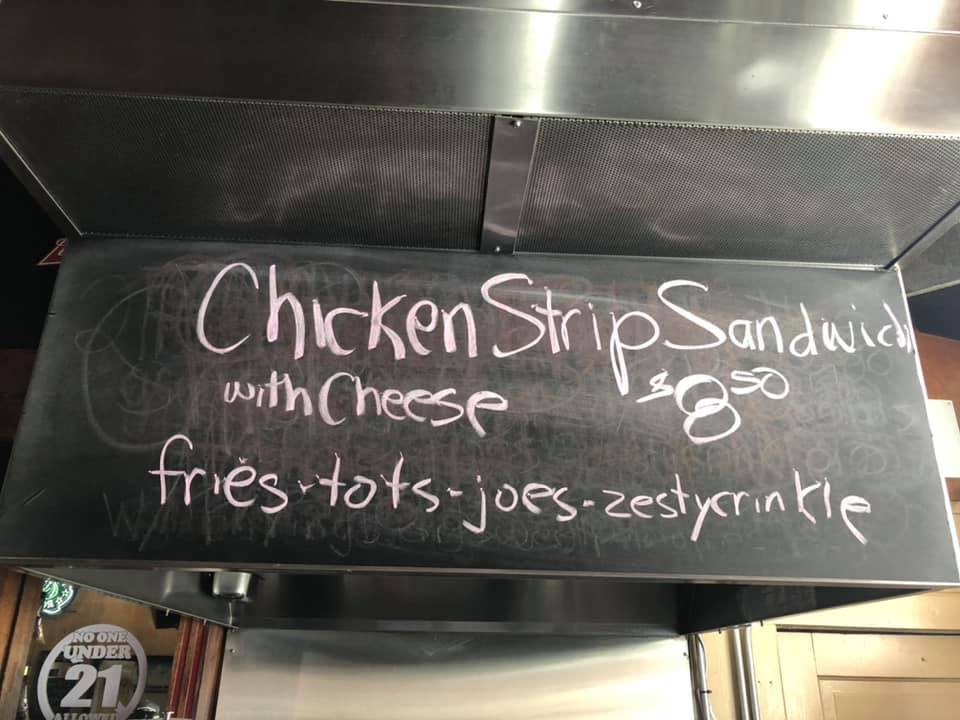 Chicken Strip Sandwich
with Cheese $8 50
fries - tots - joes - zesty crinkle
NO ONE
UNDER
21
ALLOWED